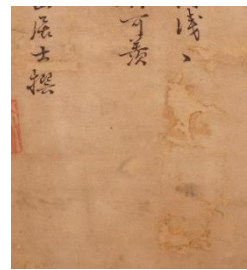 淺、
可羨
居士撰